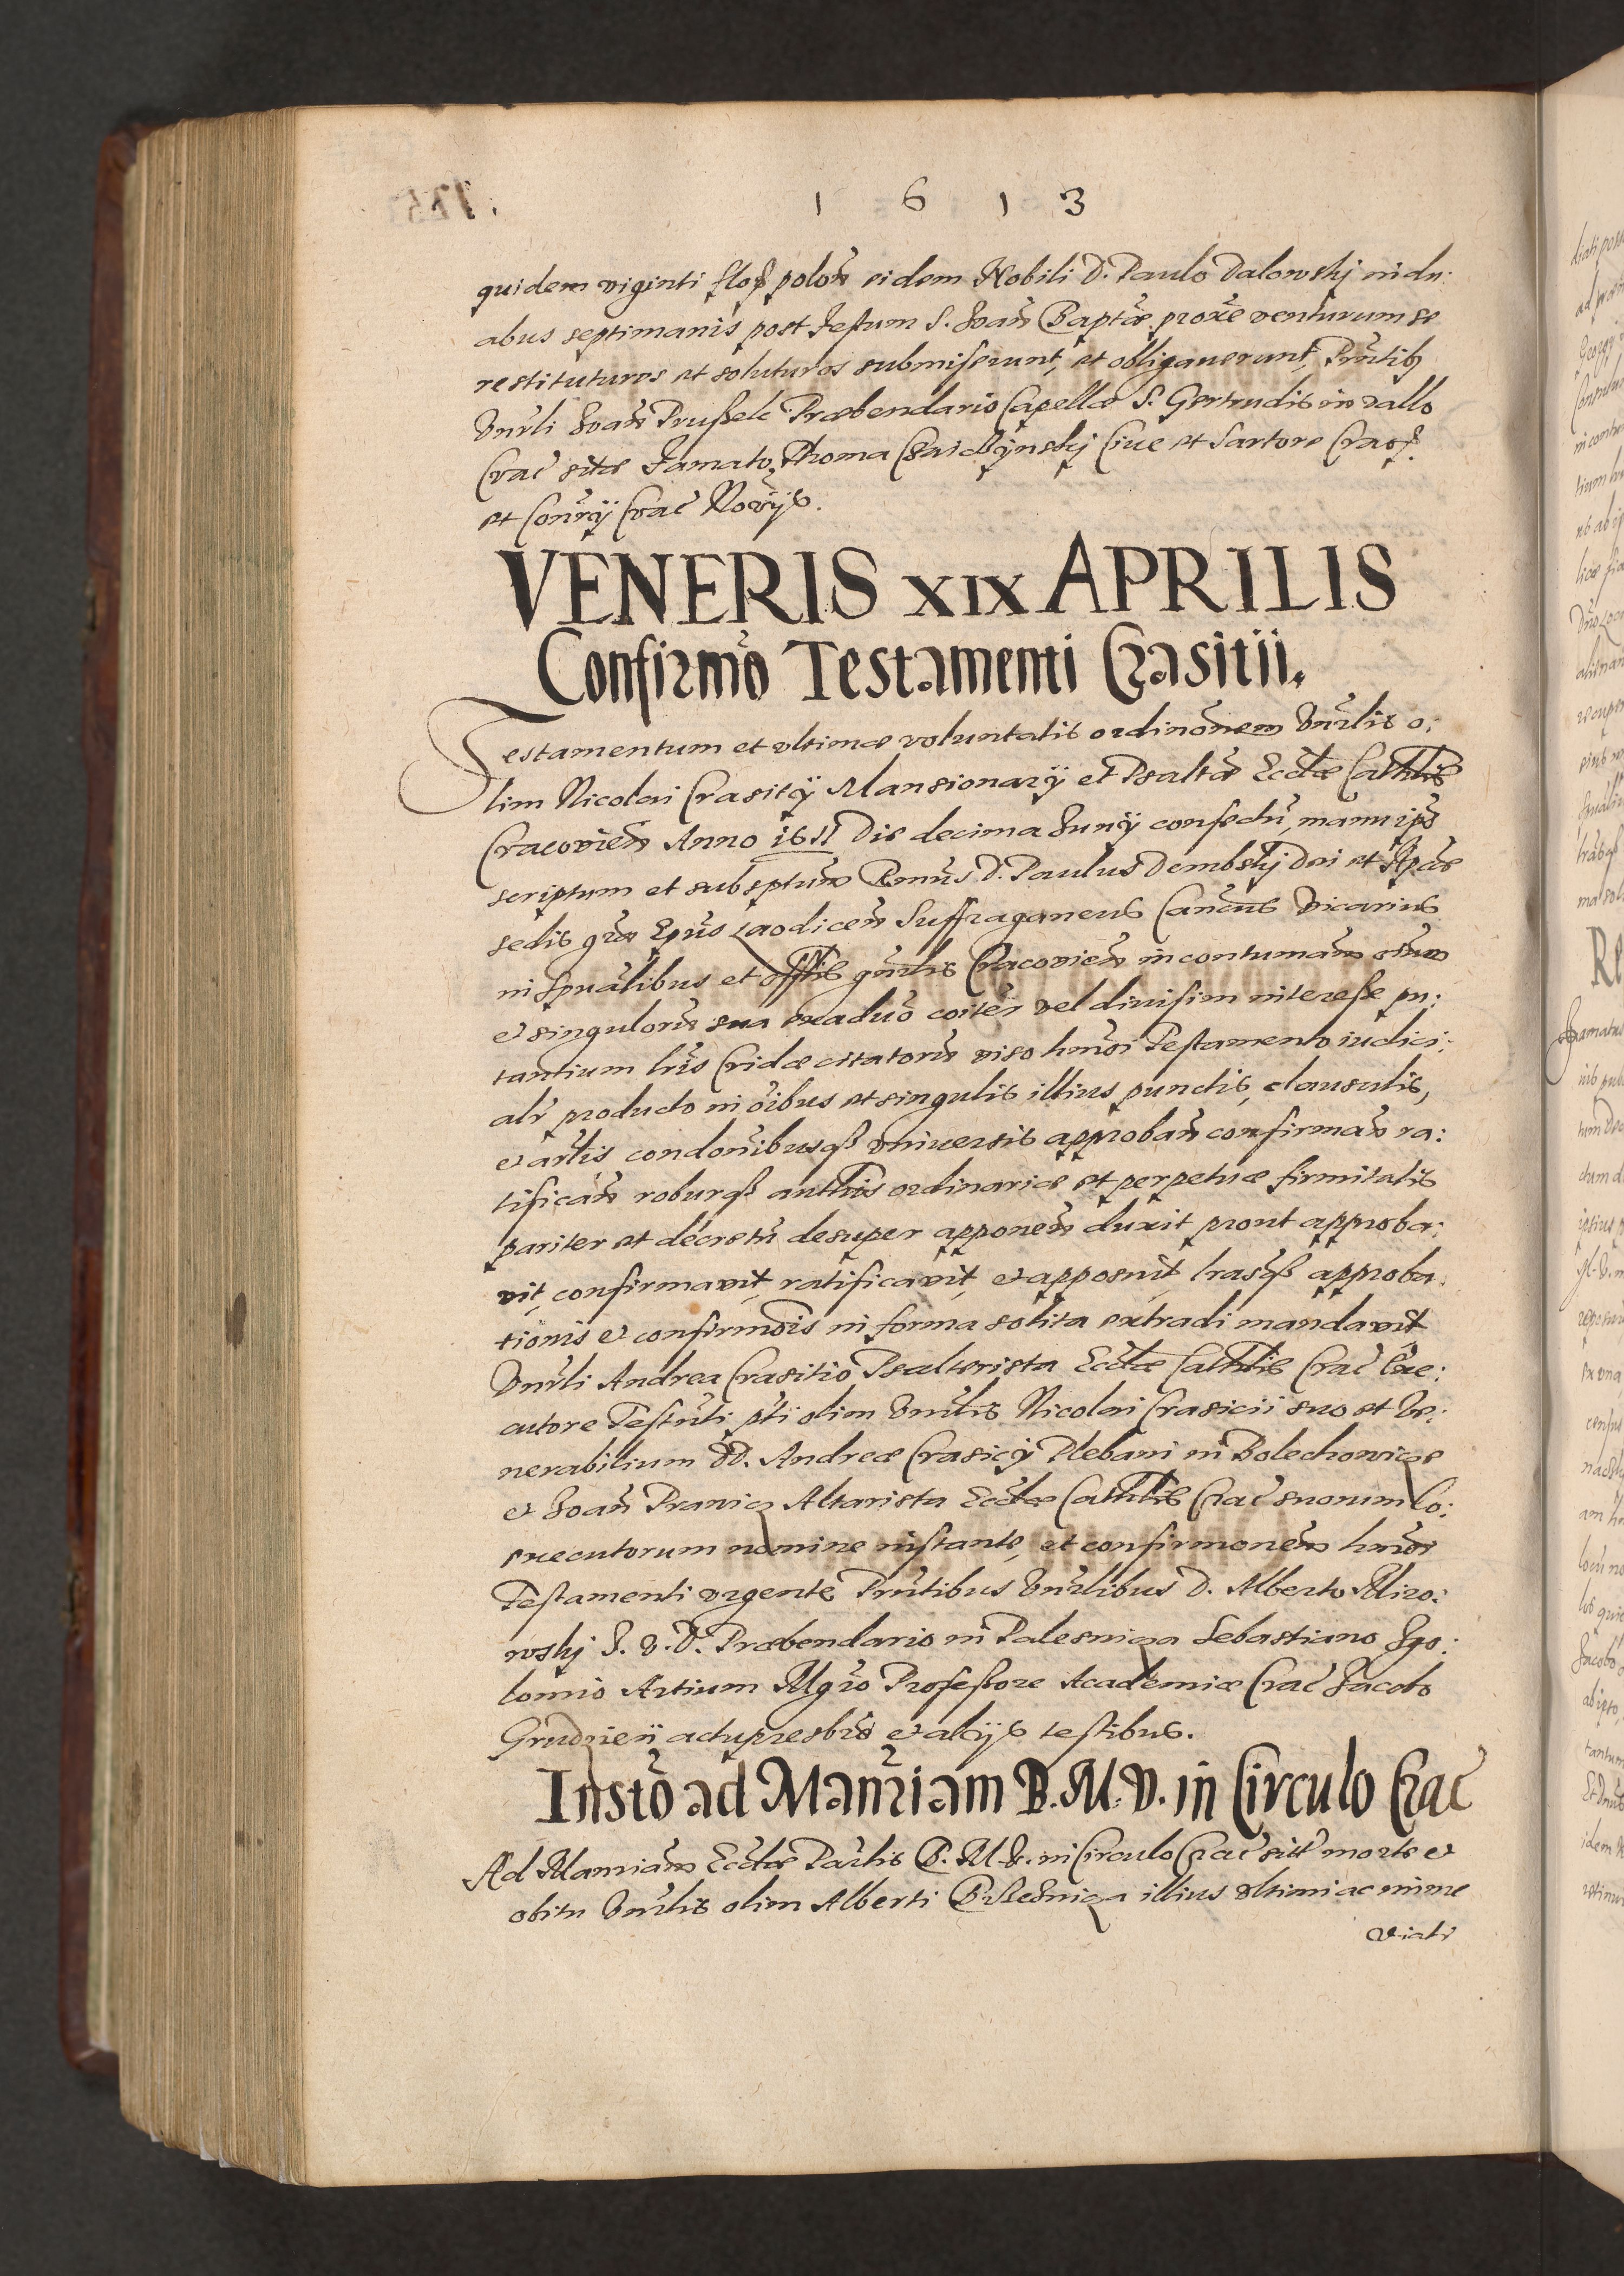 1 6 1 3
quidem viginti flor polon̄ eidem Nobili D. Paulo Dalowskj in du:
abus septimanis post Festum S. Joan̄ Baptæ proxe venturum se
restituturos et soluturos submiserunt, et obligauerunt, Prntib
Vnrli Joan̄ Prussek Præbendario Capellæ S. Gertrudis in vallo
Crac̄ sitæ Famato Thoma Ciue et Sartore Crac
et Crac̄
VENERIS XIX APRILIS
Confirmō Testamenti Crasitii.
Testamentum et vltimæ voluntatis ordinōnem Vnrlis o:
lim Nicolai Crasitij Mansionarij et Psaltæ Ecclæ Cathlis
Cracovien̄ Anno 1611 Die decima Junij confectū, manu ips
scriptum et subsptum Rmus D. Paulus Dembskj Dei et Aplcæ
sedis grā Epūs Laodicen̄ Suffraganeus Vicarius
in Spualibus et offlis gnrlis Cracovien̄ in contumam oīum
et singulorū sua coiter vel diuisim interesse pu:
tantium lris Cridæ citatorū viso hmōi Testamento iudici:
alr producto in oībus et singulis illius punctis, clausulis,
et artlis condonibusq vniuersis approban̄ confirman̄ ra:
tifican̄ roburq authtis ordinariæ et perpetuæ firmitatis
pariter et decretū desuper apponen̄ duxit prout approba:
vit, confirmavit, ratificavit, et apposuit, lrasq approba:
tionis et confirmōis in forma solita extradi mandavit
Vnrli Andrea Crasitio Psalterista Ecclæ Cathlis Crac̄ Exe:
cutore Testnti pti olim Vnrlis Nicolai Crasicii suo et Ve:
nerabilium DD. Andreæ Crasicij Plebani in Bolechowice
et Joan̄ Altarista Ecclæ Cathlis Crac̄ suorum Co:
executorum nomine instante, et confirmonem hmōi
Testamenti vrgente Prntibus Vnrlibus D. Alberto Miro:
wskj J. V. D. Præbendario in Palesnica Sebastiano Jgo:
lomio Artium Mgro Professore Academiæ Crac̄ Jacobo
presbrō et alijs testibus.
Instō ad Manriam B. M. V. in Circulo Crac̄
Ad Manriam Ecclæ Parlis B. M. V. in Circulo Crac̄ sit morte et
obitu Vnrlis olim Alberti illius vltimi ac imme
diati